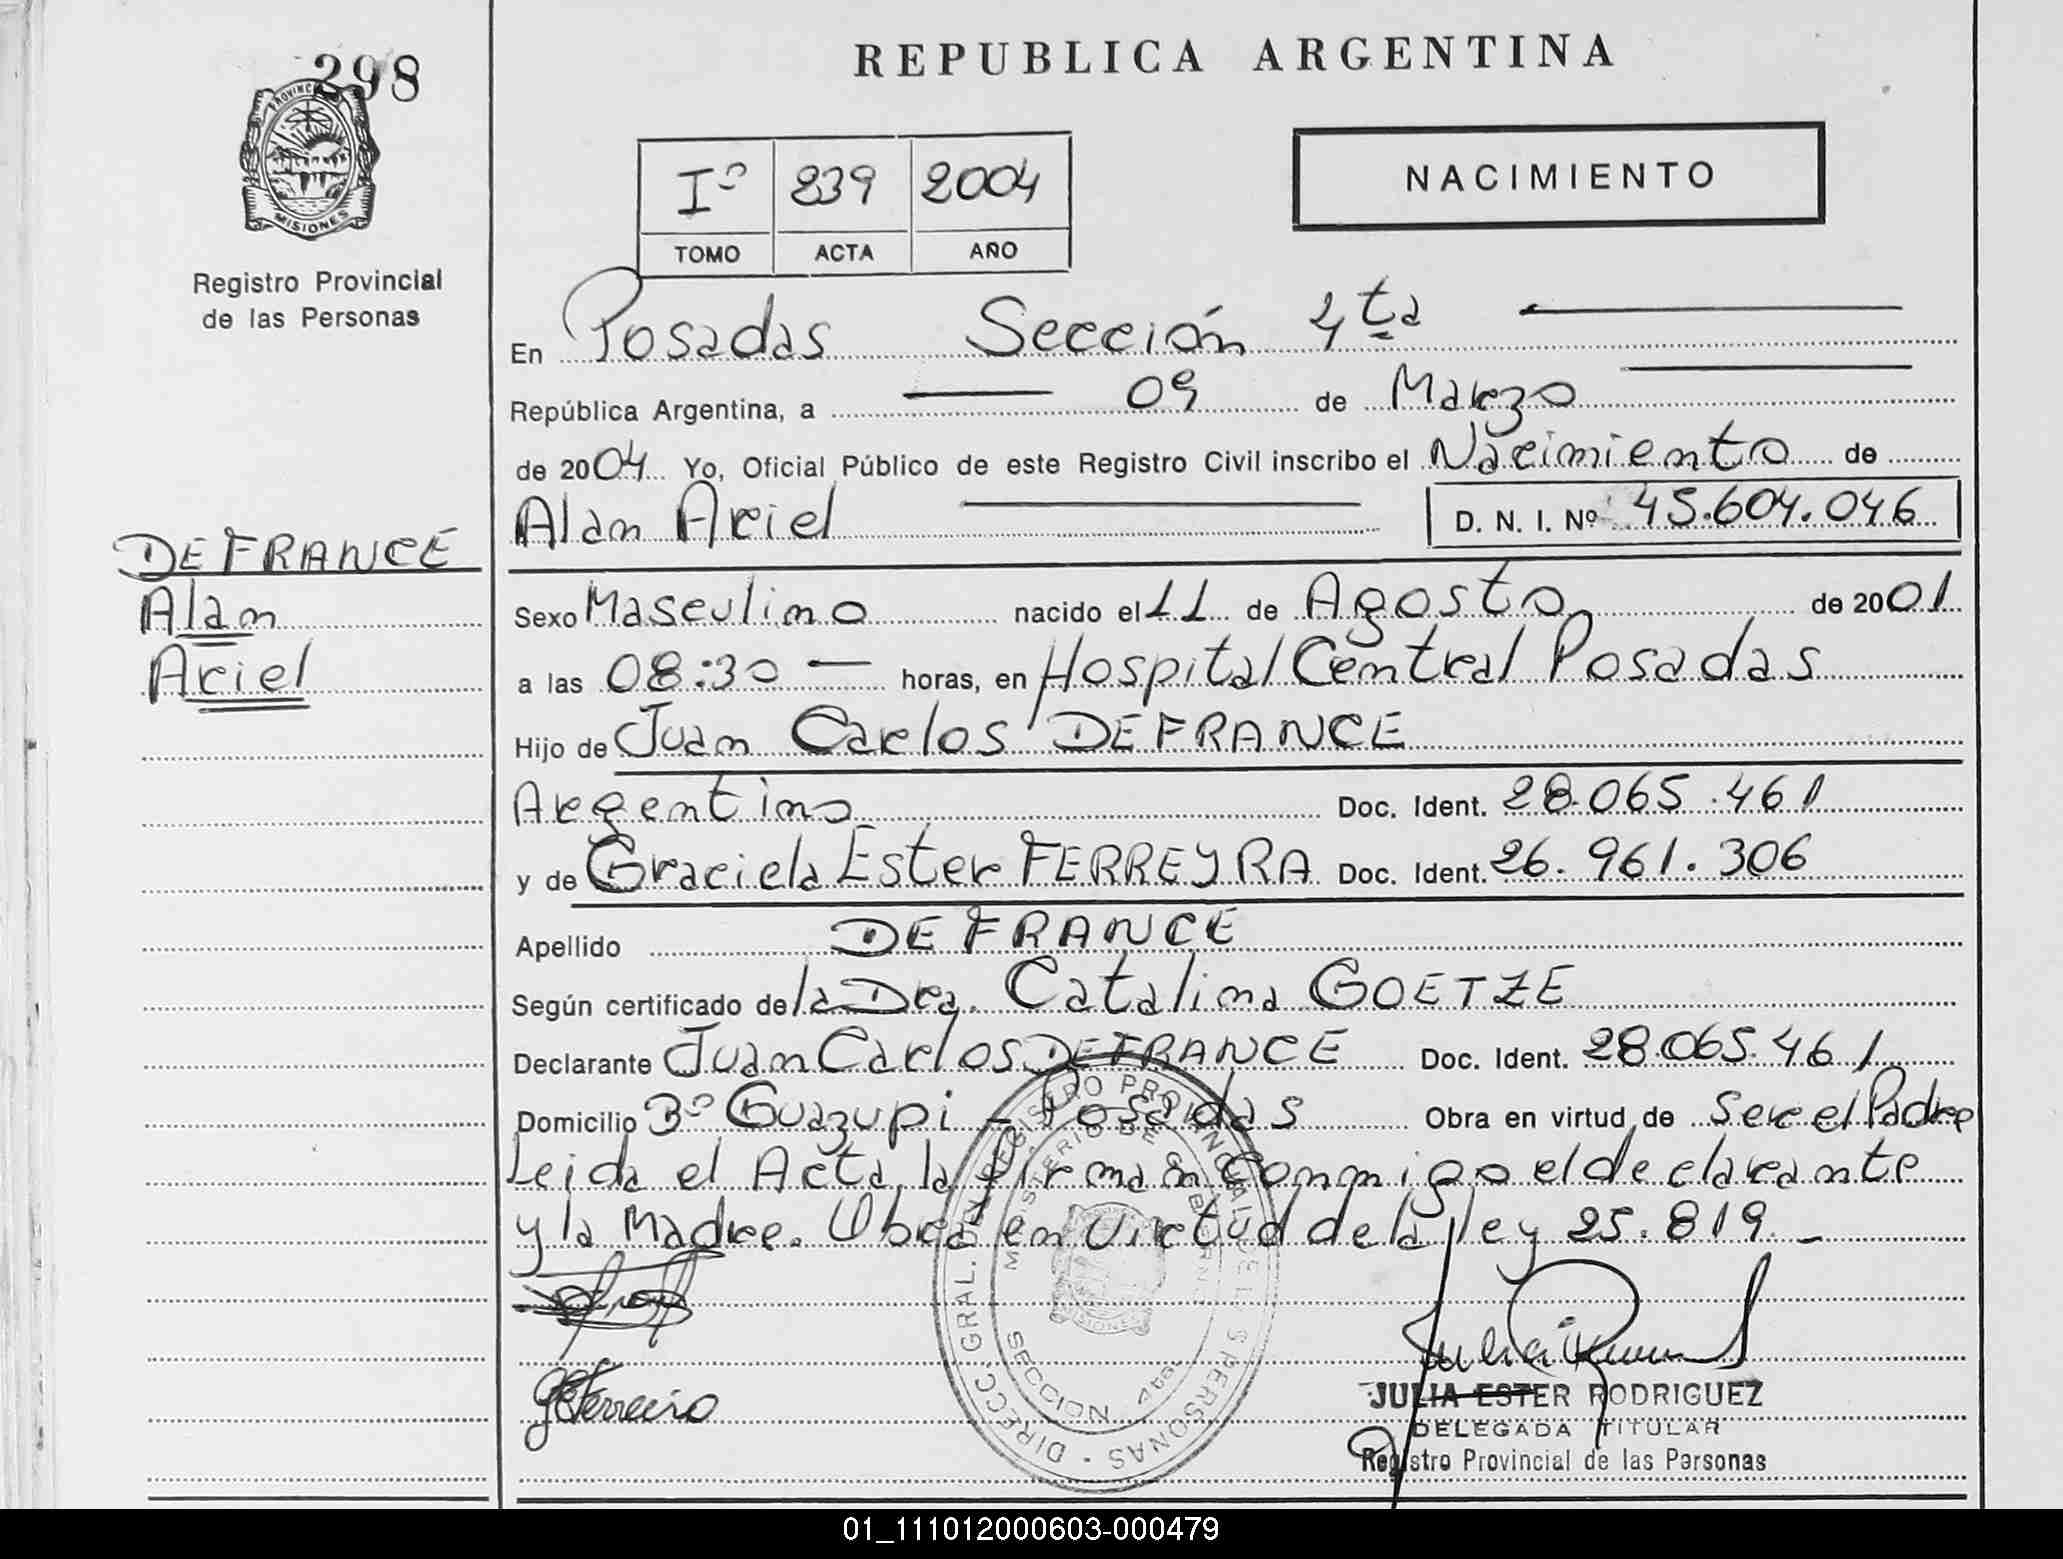 298
PROVINCIA
MISIONES
Registro Provincial
de las Personas
DEFRANCE
Alan
Ariel
REPUBLICA ARGENTINA
Iº 239 2004
TOMO ACTA AÑO
NACIMIENTO
En Posadas Sección 4ta
República Argentina, a 09 de Marzo
de 2004 Yo, Oficial Público de este Registro Civil inscribo el Nacimiento de
Alan Ariel D. N. I. Nº 45.604.046
Sexo Masculino nacido el 11 de Agosto de 2001
a las 08:30 horas, en Hospital Central Posadas
Hijo de Juan Carlos DEFRANCE
Argentino Doc. Ident. 28.065.461
y de Graciela Ester FERREYRA Doc. Ident. 26.961.306
Apellido DEFRANCE
Según certificado de la Dra. Catalina GOETZE
Declarante Juan Carlos DEFRANCE Doc. Ident. 28.065.461
Domicilio Bº Guazupi - Posadas Obra en virtud de Ser el Padre
Leida el Acta, la firman Conmigo el declarante
y la Madre. Obra en Virtud de la ley 25.819.-
DIRECC. GRAL. DEL REGISTRO PROVINCIAL DE LAS PERSONAS
MINISTERIO DE GOBIERNO
MISIONES
SECCION 4ta.
JULIA ESTER RODRIGUEZ
DELEGADA TITULAR
Registro Provincial de las Personas
01_111012000603-000479